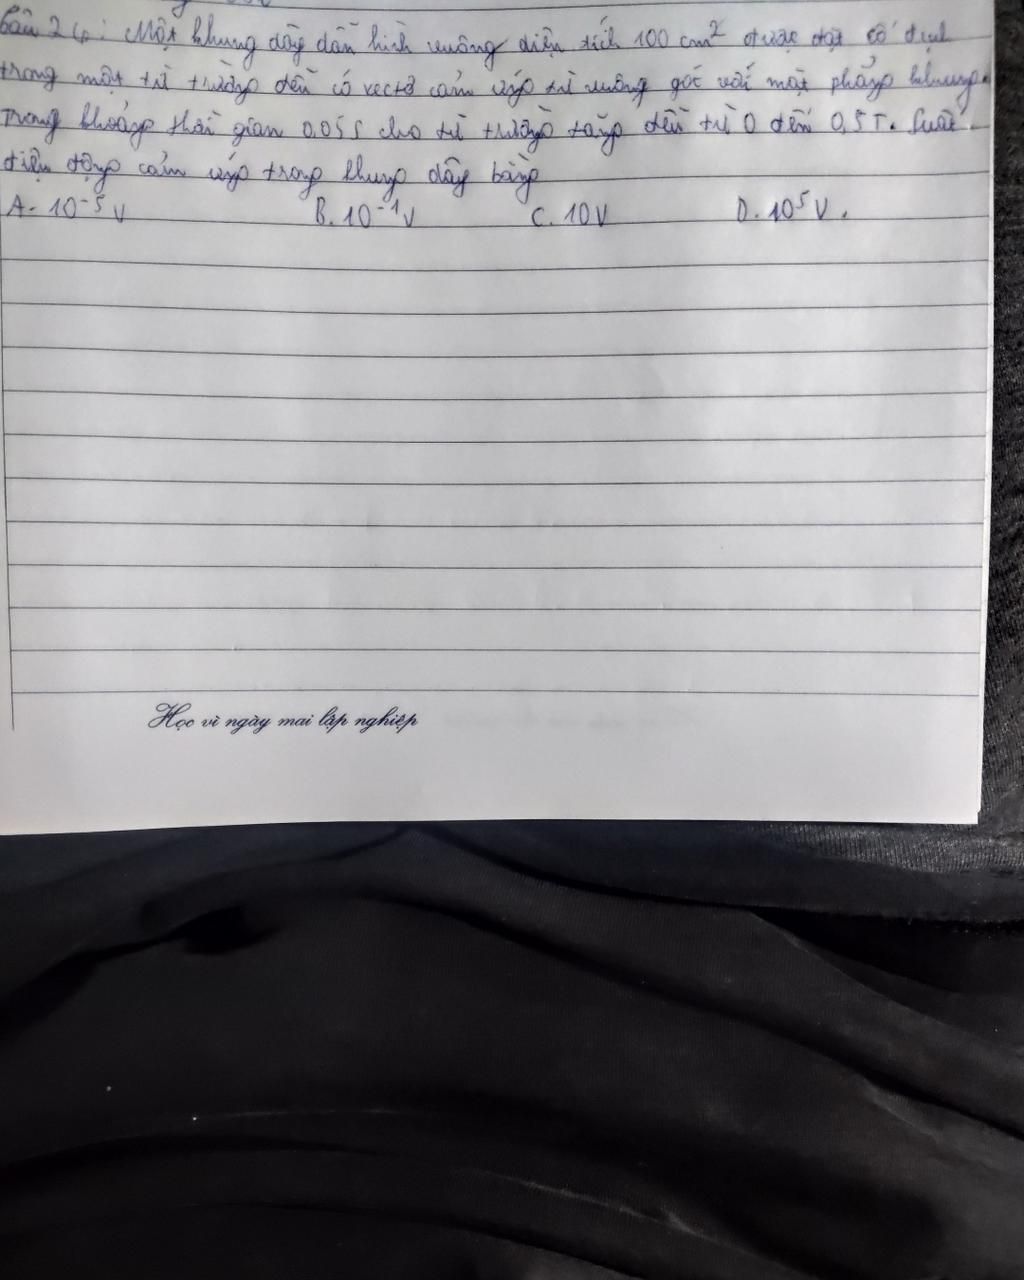 Câu 24: Một khung dây dẫn hình vuông diện tích 100 cm² được đặt cố định
trong một từ trường đều có vectơ cảm ứng từ vuông góc với mặt phẳng khung.
Trong khoảng thời gian 0,05 s cho từ trường tăng đều từ 0 đến 0,5 T. Suất
điện động cảm ứng trong khung dây bằng
A. 10⁻⁵ V B. 10⁻¹ V C. 10 V D. 10⁵ V.
Học vì ngày mai lập nghiệp